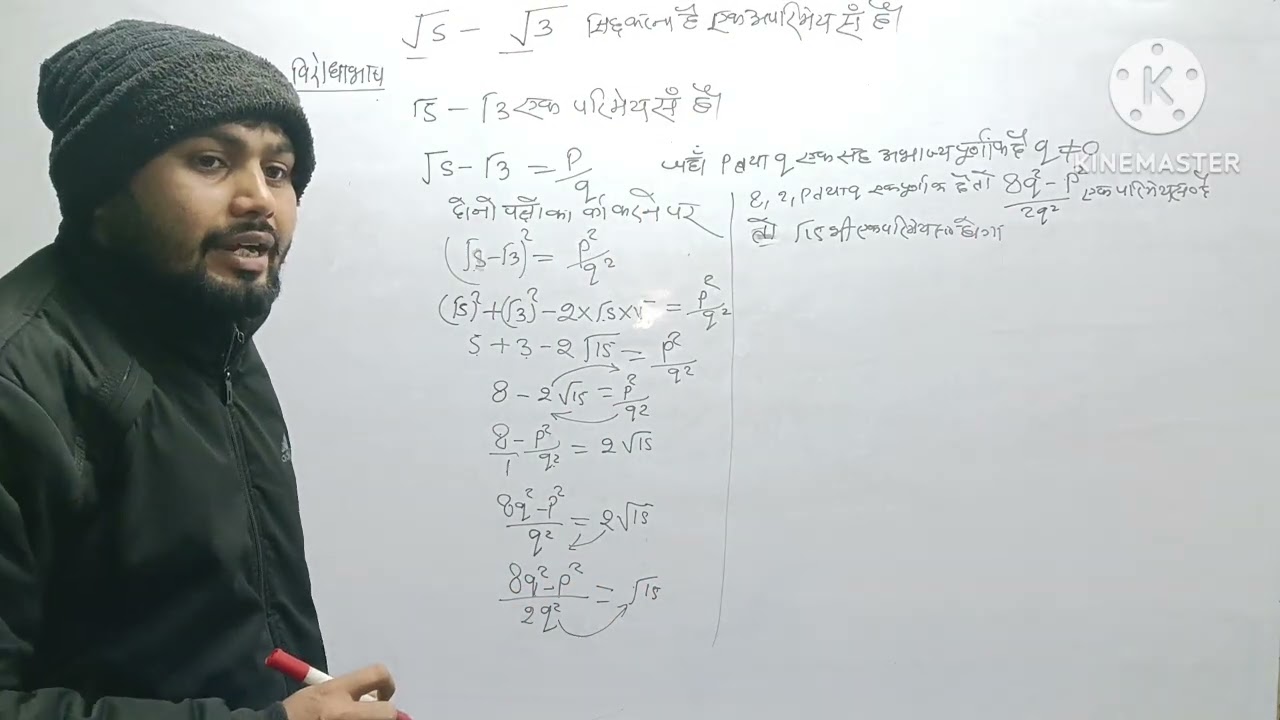 √5 - √3 सिद्ध करना है एक अपरिमेय सं है।
विरोधाभाष
√5 - √3 एक परिमेय सं है।
√5 - √3 = p/q जहाँ P तथा q एक सह अभाज्य पूर्णांक है q ≠ 0
दोनो पक्षों का वर्ग करने पर
(√5-√3)² = p²/q²
(√5)² + (√3)² - 2×√5×√ = p²/q²
5 + 3 - 2√15 = p²/q²
8 - 2√15 = p²/q²
8/1 - p²/q² = 2√15
8q²-p²/q² = 2√15
8q²-p²/2q² = √15
8, 2, P तथा q एक पूर्णांक है तो 8q²-p²/2q² एक परिमेय सं० है
तो √15 भी एक परिमेय सं० होगा
K
KINEMASTER
adidas